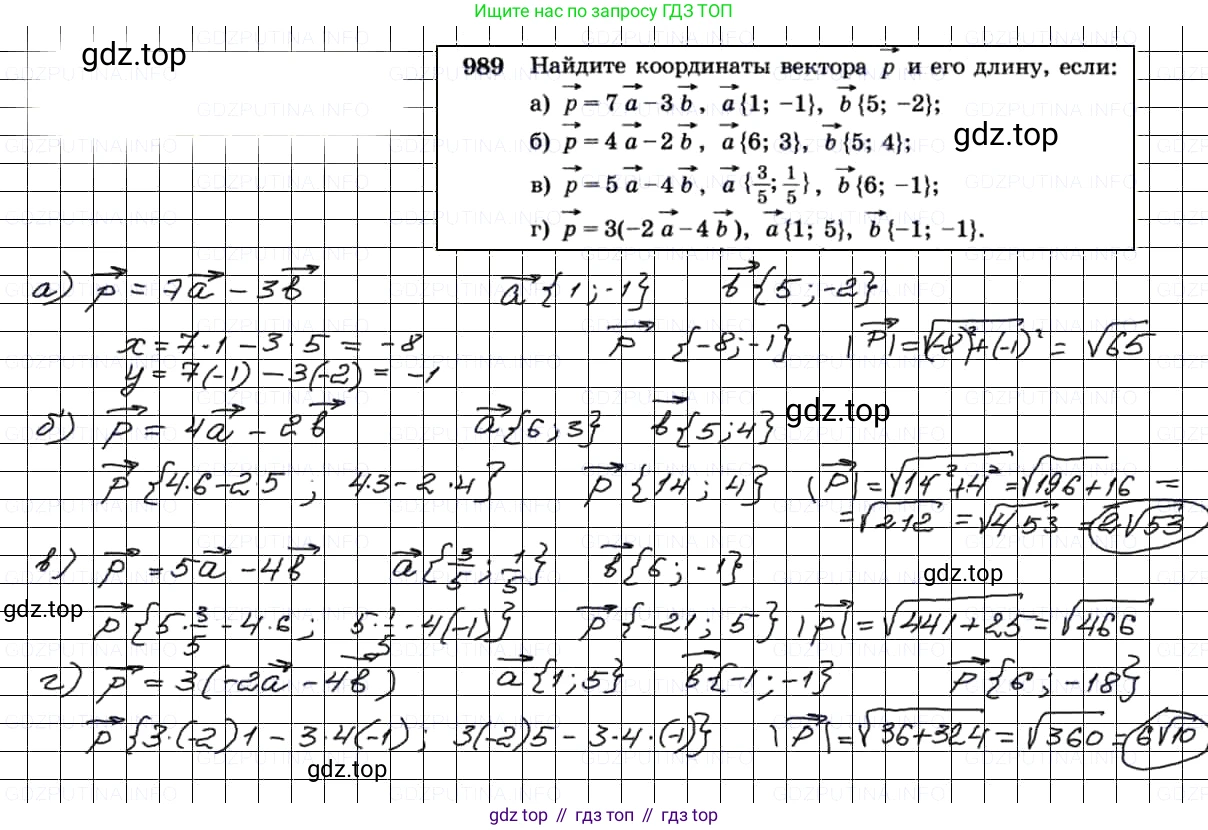 Ищите нас по запросу ГДЗ ТОП
gdz.top
989 Найдите координаты вектора p и его длину, если:
а) p = 7a − 3b, a{1; −1}, b{5; −2};
б) p = 4a − 2b, a{6; 3}, b{5; 4};
gdz.top
в) p = 5a − 4b, a{3/5; 1/5}, b{6; −1};
г) p = 3(−2a − 4b), a{1; 5}, b{−1; −1}.
а) p = 7a − 3b a{1; -1} b{5; -2}
x = 7·1 − 3·5 = −8 p {-8; -1} |p| = √(-8)²+(-1)² = √65
y = 7(-1) − 3(-2) = −1
б) p = 4a − 2b a{6; 3} b{5; 4}
gdz.top
p {4·6−2·5 ; 4·3−2·4} p {14; 4} |p| = √14²+4² = √196+16 =
= √212 = √4·53 = 2√53
в) p = 5a − 4b a{3/5; 1/5} b{6; -1}
gdz.top
gdz.top
p {5·3/5 − 4·6; 5·1/5 - 4(-1)} p {-21; 5} |p| = √441+25 = √466
г) p = 3(-2a − 4b) a{1; 5} b{-1; -1} p {6; -18}
p {3·(-2)1 − 3·4(-1); 3(-2)5 − 3·4·(-1)} |p| = √36+324 = √360 = 6√10
gdz.top
gdz top // гдз топ // gdz top